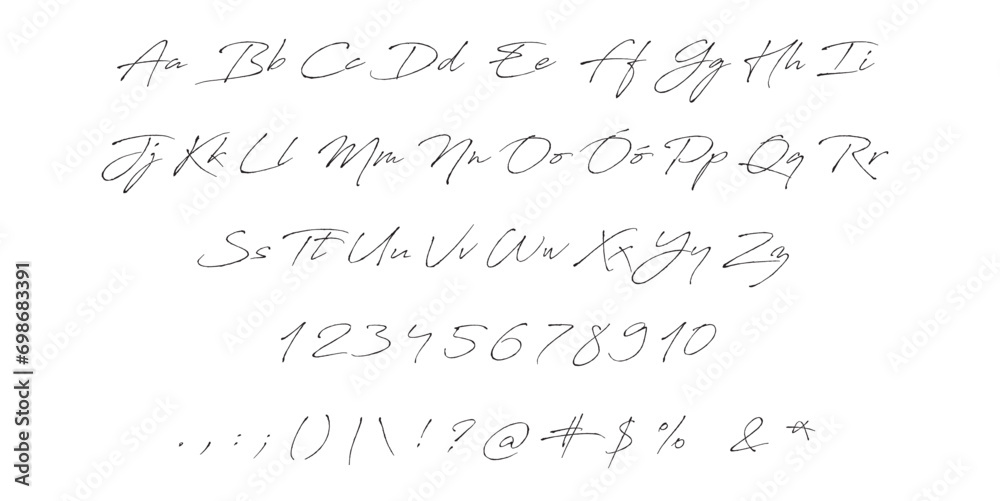 Aa Bb Cc Dd Ee Ff Gg Hh Ii
Jj Kk Ll Mm Nn Oo Óó Pp Qq Rr
Ss Tt Uu Vv Ww Xx Yy Zz
1 2 3 4 5 6 7 8 9 1 0
. , : ; ( ) | \ ! ? @ # $ % & *
Adobe Stock | #698683391